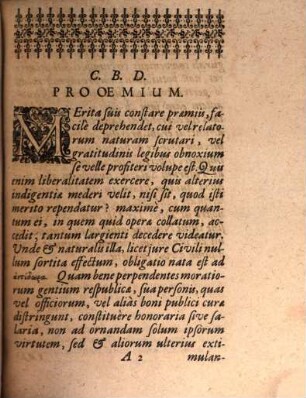 C. B. D.
PROOEMIUM.
MErita suis constare præmiis, fa-
cilè deprehendet, cui vel relato-
rum naturam scrutari, vel
gratitudinis legibus obnoxium
se velle profiteri volupe est. Quis
enim liberalitatem exercere, quis alterius
indigentia mederi velit, nisi sit, quod isti
merito rependatur? maximè, cum quan-
tum ei, in quem quid operæ collatum, ac-
cedit, tantum largienti decedere videatur.
Unde & naturalis illa, licet jure Civili nul-
lum sortita effectum, obligatio nata est ad
ἀντίδωρα. Quam bene perpendentes moratio-
rum gentium respublicæ, sua personis, quas
vel officiorum, vel aliàs boni publici cura
distringunt, constituêre honoraria sive sa-
laria, non ad ornandam solum ipsorum
virtutem, sed & aliorum ulterius exti-
A 2 mulan-